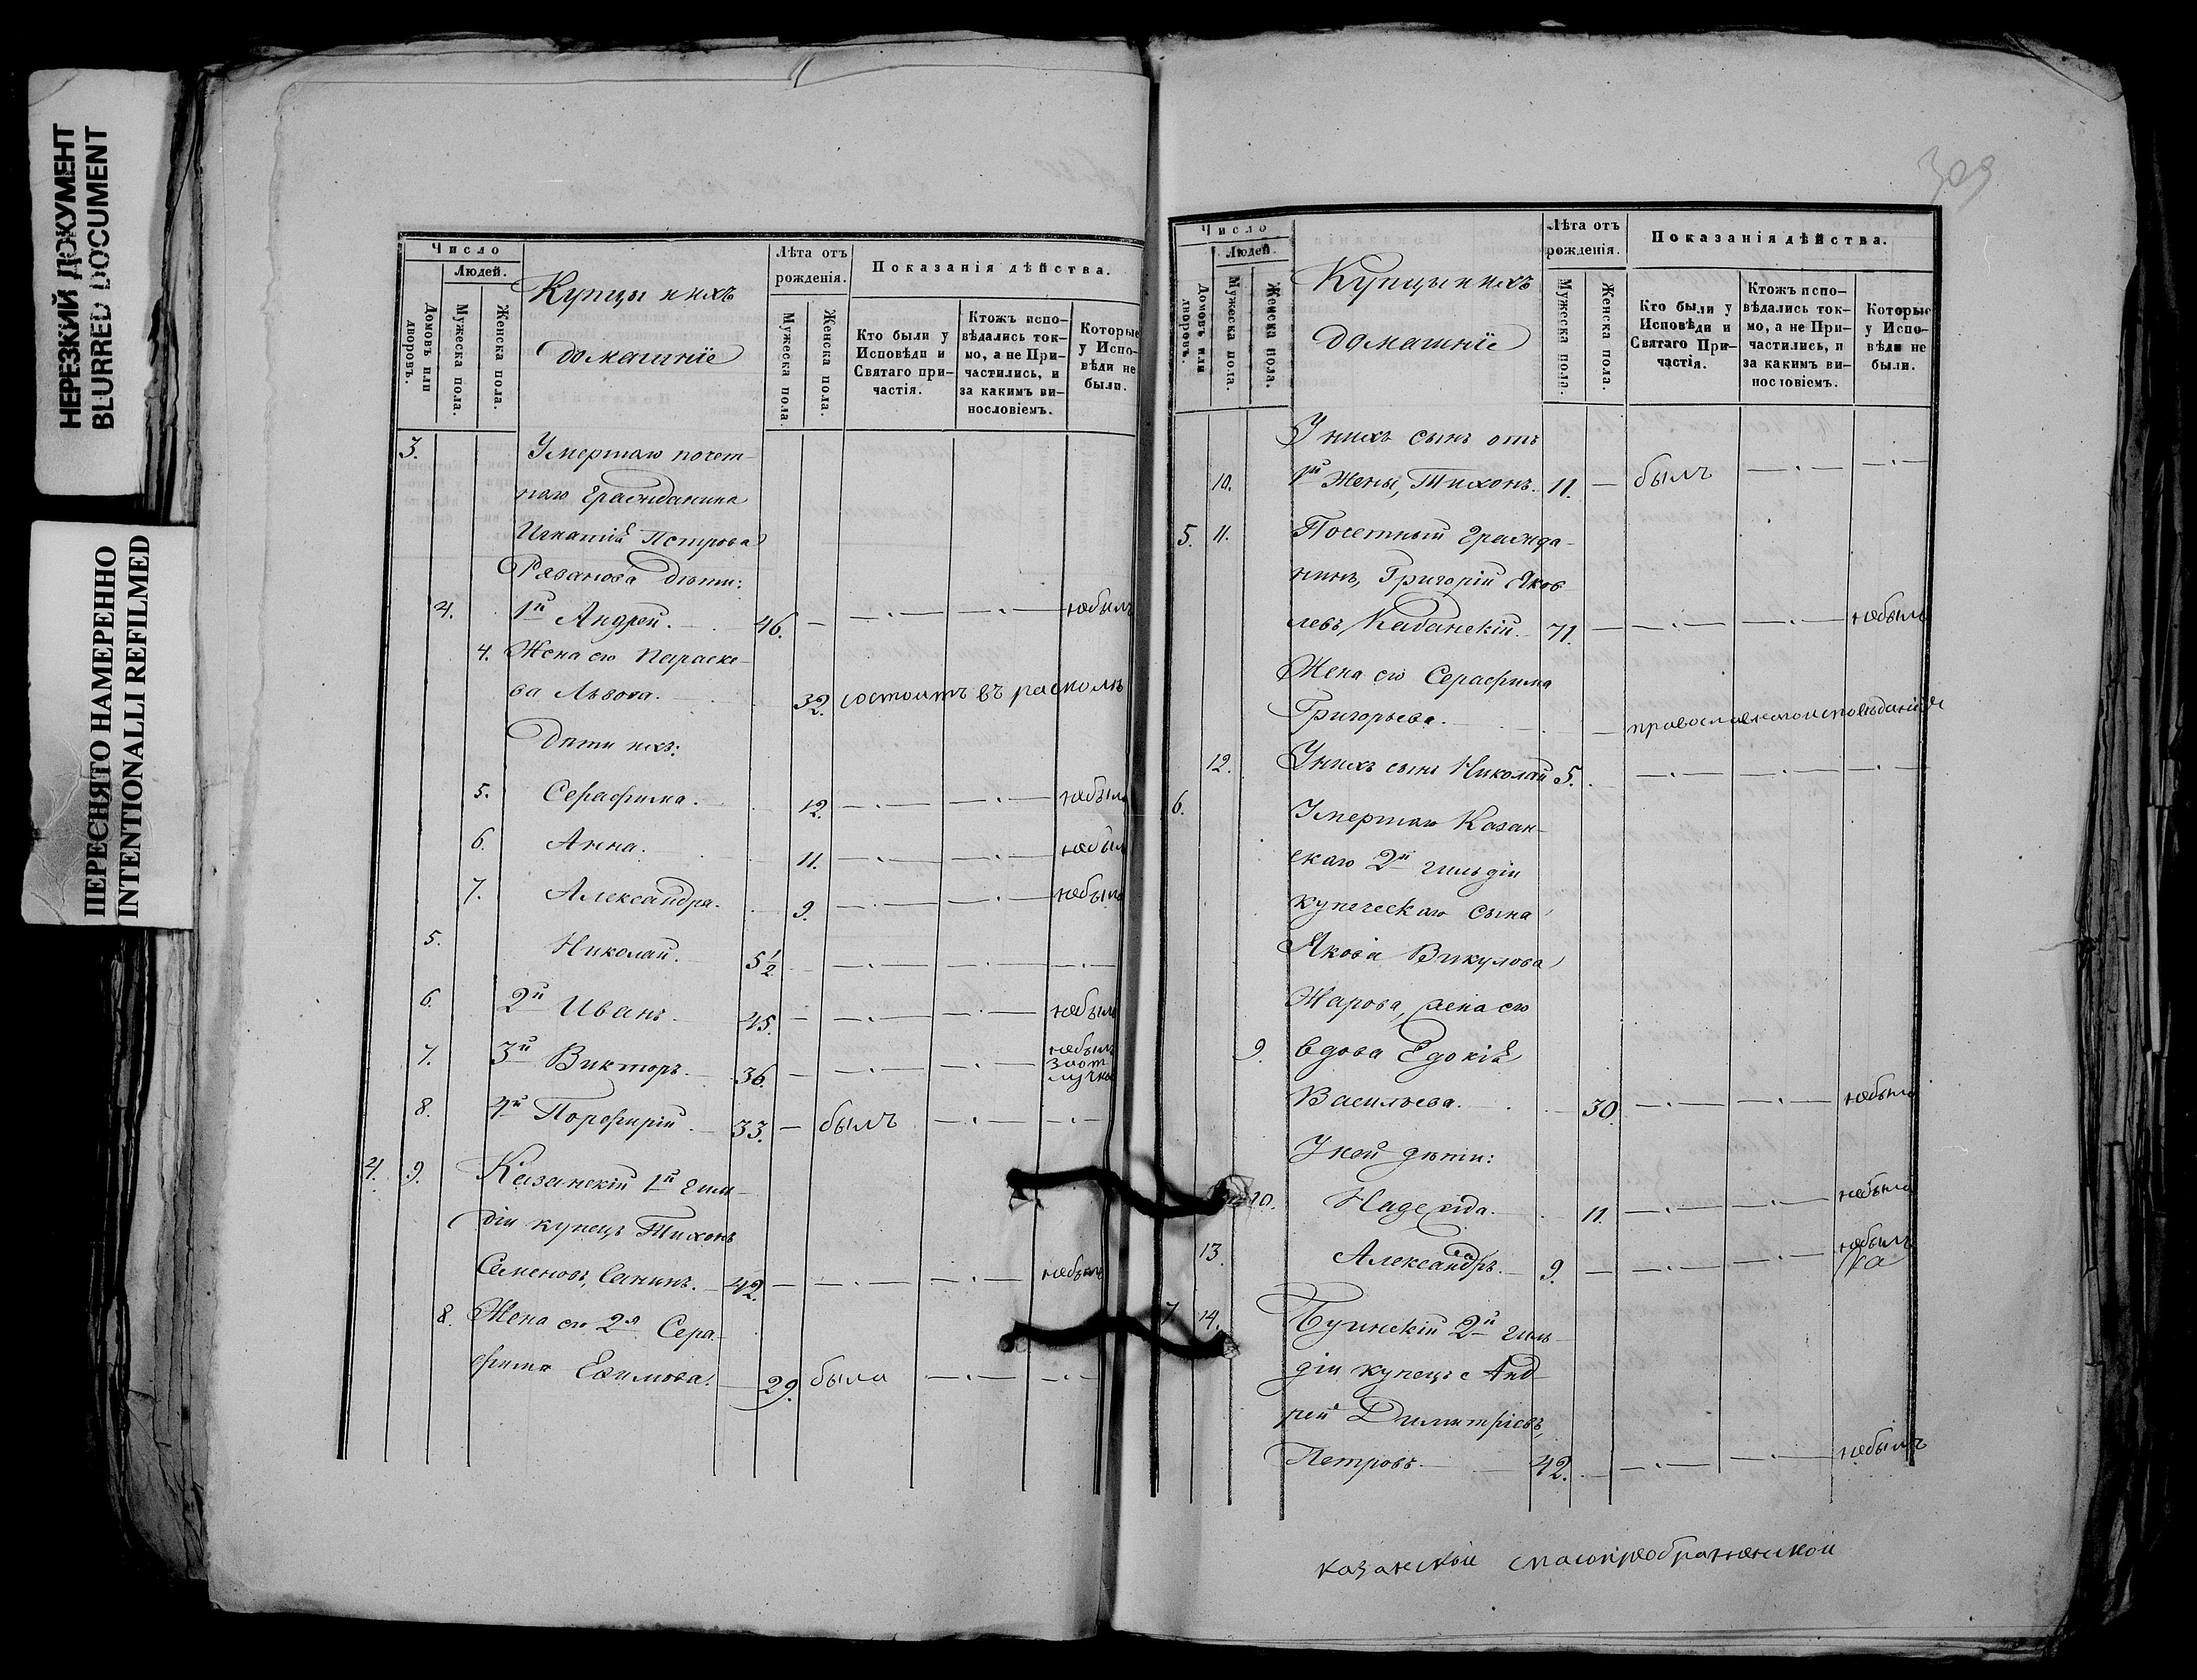 НЕРЕЗКИЙ ДОКУМЕНТ
BLURRED DOCUMENT
ПЕРЕСНЯТО НАМЕРЕННО
INTENTIONALLI REFILMED
Число
Людей.
Домовъ или дворовъ.
Мужеска пола.
Женска пола.
Купцы и ихъ
домашнiе
Лѣта отъ
рожденiя.
Мужеска пола
Женска пола.
Показанiя дѣйства.
Кто были у
Исповѣди и
Святаго при-
частiя.
Ктожъ испо-
вѣдались ток-
мо, а не При-
частились, и
за какимъ ви-
нословiемъ.
Которые
у Испо-
вѣди не
были.
3. Умершаго почет-
наго Гражданина
Игнатiя Петрова
Рязанова дѣти:
4. 1й Андрей. 46. — —.— —.— небылъ
4. Жена его Параске-
ва Львова. 32. состоитъ въ расколѣ
Дѣти ихъ:
5. Серафима. 12. —.— —.— небыла
6. Анна. 11. —.— —.— небыла
7. Александра. 9. —.— —.— небыла
5. Николай. 5½ —.— —.— —.—
6. 2й Иванъ. 45. — —.— —.— небылъ
7. 3й Викторъ. 36. — —.— —.— небылъ
заот
лучкой
8. 4й Порфирiй. 33. — былъ —.— —.—
4. 9. Казанскiй 1й гил-
дiи купецъ Тихонъ
Семеновъ, Санинъ. 42. — —.— —.— небылъ
8. Жена его 2я Сера-
фима Ефимова. 29. была —.— —.—
309
Число
Людей.
Домовъ или дворовъ.
Мужеска пола.
Женска пола.
Купцы и ихъ
домашнiе
Лѣта отъ
рожденiя.
Мужеска пола.
Женска пола.
Показанiя дѣйства.
Кто были у
Исповѣди и
Святаго При-
частiя.
Ктожъ испо-
вѣдались ток-
мо, а не При-
частились, и
за какимъ ви-
нословiемъ.
Которые
у Испо-
вѣди не
были.
У нихъ сынъ отъ
10. 1й Жены, Тихонъ. 11. — былъ —.— —.—
5. 11. Почетный гражда-
нинъ, Григорiй Яков
левъ, Кабанскiй. 71. — —.— —.— небылъ
Жена его Серафима
Григорьева. — православнаго исповѣданiя
12. У нихъ сынъ Николай 5. —.— —.— —.—
6. Умершаго Казан-
скаго 2й гильдiи
купеческаго сына
Якова Викулова
Жарова, жена его
9. вдова Евдокiя
Васильева. 30. —.— —.— небыла
У ней дѣти:
10. Надежда. 11. —.— —.— небыла
13. Александръ. 9. — —.— —.— небылъ
7 14. Буинскiй 2й гиль-
дiи купецъ Анд
рей Димитрiевъ,
Петровъ. 42. —.— —.— небылъ
казанской спасопреображенской